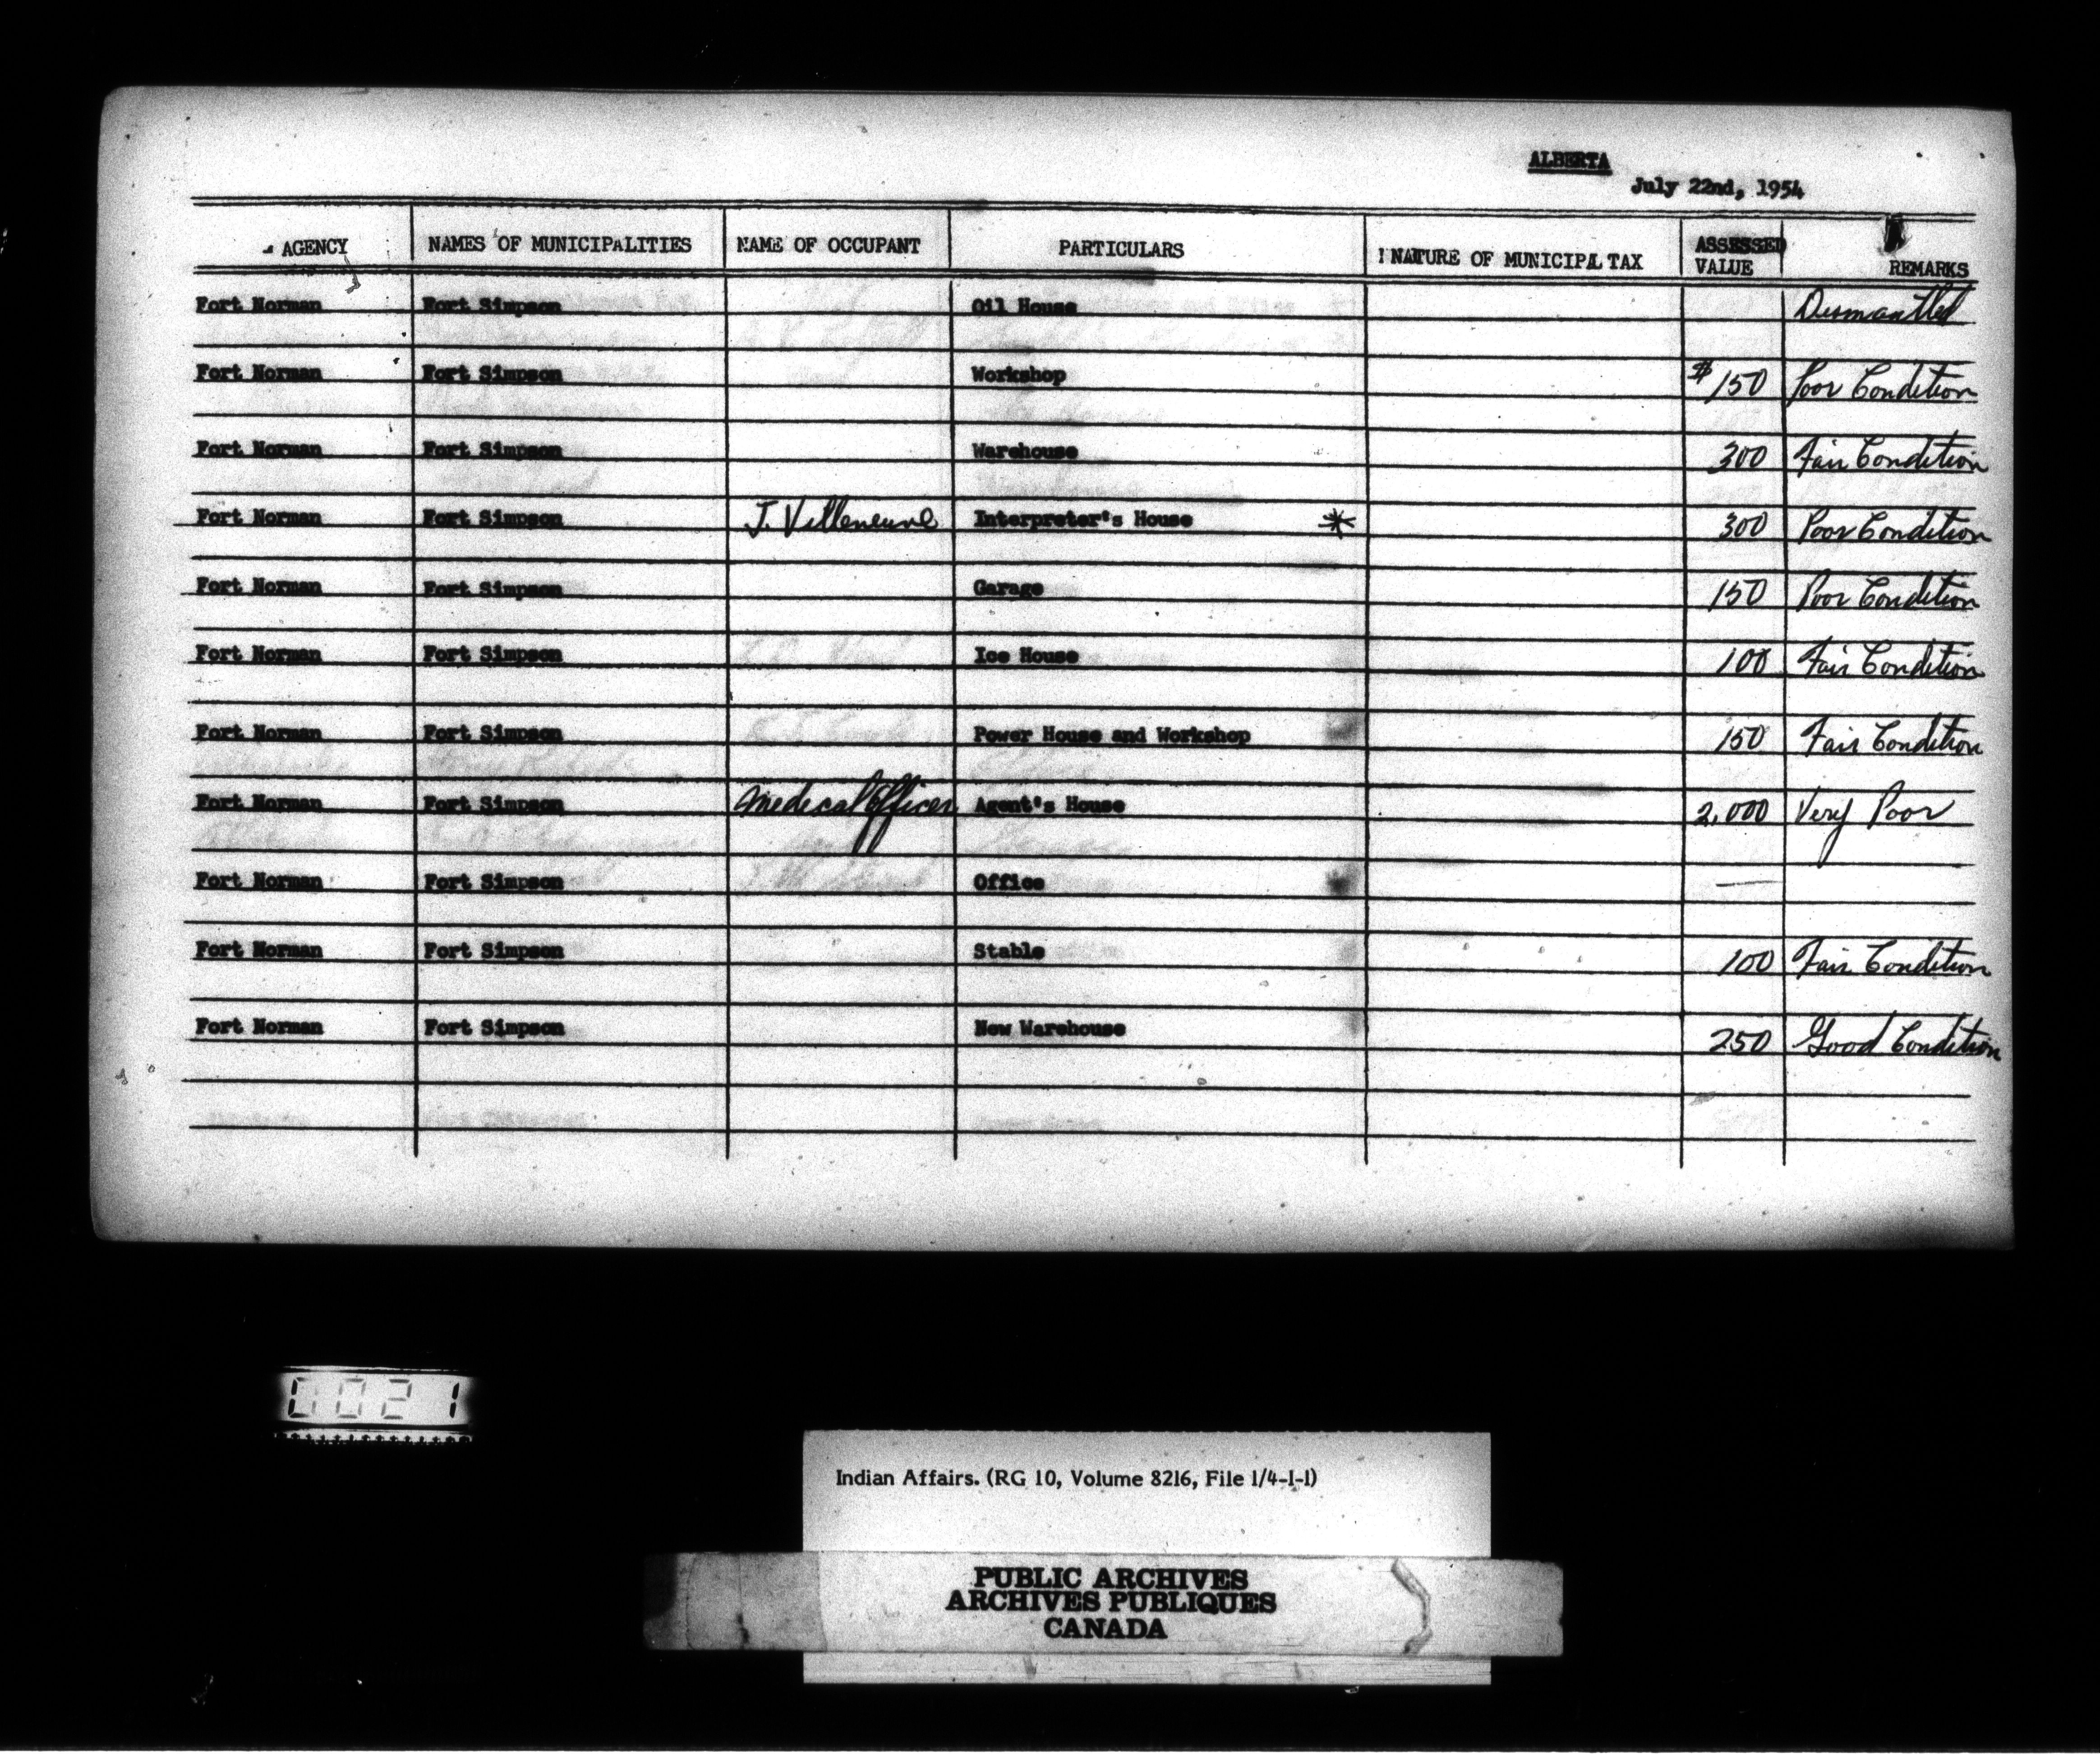 ALBERTA
July 22nd, 1954
AGENCY NAMES OF MUNICIPALITIES NAME OF OCCUPANT PARTICULARS NATURE OF MUNICIPAL TAX ASSESSED VALUE REMARKS
Fort Norman Fort Simpson Oil House Dismantled
Fort Norman Fort Simpson Workshop $150 Poor Condition
Fort Norman Fort Simpson Warehouse 300 Fair Condition
Fort Norman Fort Simpson J. Villeneuve Interpreter's House * 300 Poor Condition
Fort Norman Fort Simpson Garage 150 Poor Condition
Fort Norman Fort Simpson Ice House 100 Fair Condition
Fort Norman Fort Simpson Power House and Workshop 150 Fair Condition
Fort Norman Fort Simpson Medical Officer Agent's House 2,000 Very Poor
Fort Norman Fort Simpson Office —
Fort Norman Fort Simpson Stable 100 Fair Condition
Fort Norman Fort Simpson New Warehouse 250 Good Condition
0021
Indian Affairs. (RG 10, Volume 8216, File 1/4-1-1)
PUBLIC ARCHIVES
ARCHIVES PUBLIQUES
CANADA